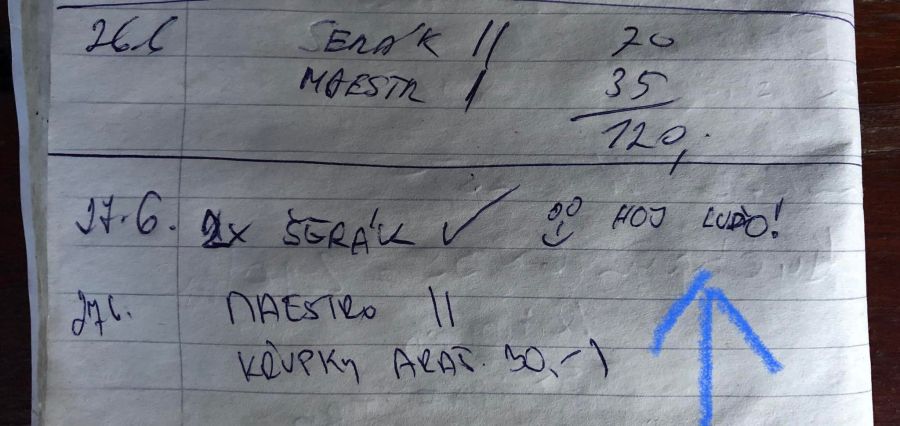 26.6 ŠERÁK || 70
MAESTR | 35
120,-
27.6. 2x ŠERÁK ✓ HOJ LUĎO!
27.6. MAESTRO ||
KŘUPKY ARAŠ. 30,-|